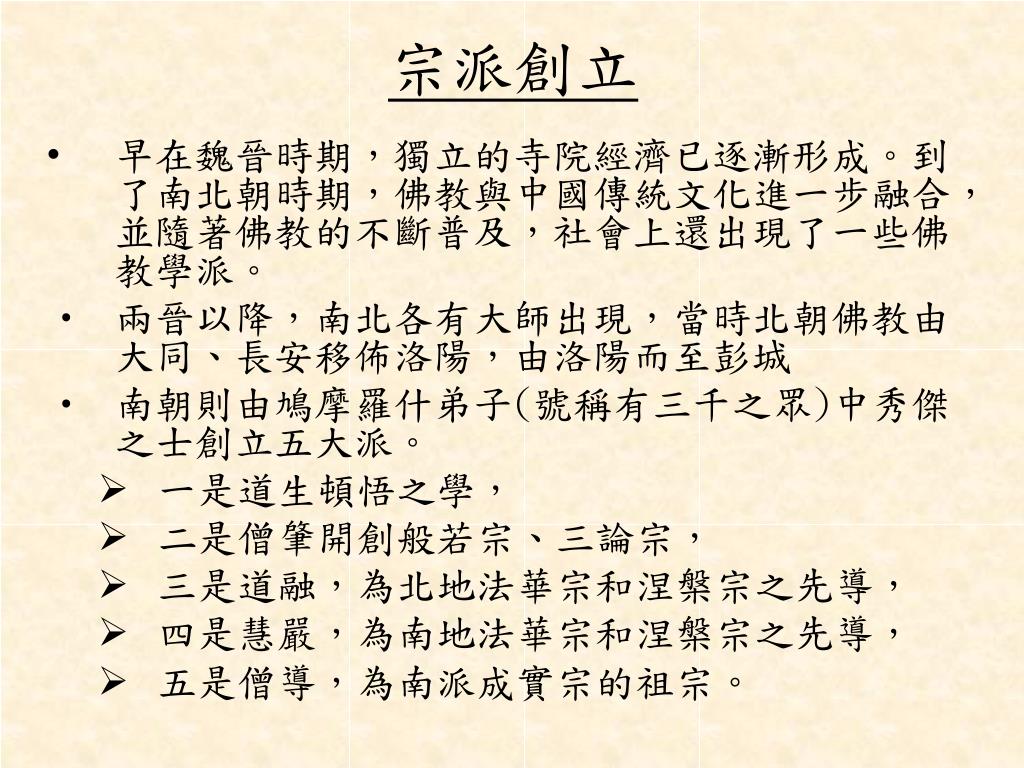 宗派創立
• 早在魏晉時期，獨立的寺院經濟已逐漸形成。到
了南北朝時期，佛教與中國傳統文化進一步融合，
並隨著佛教的不斷普及，社會上還出現了一些佛
教學派。
• 兩晉以降，南北各有大師出現，當時北朝佛教由
大同、長安移佈洛陽，由洛陽而至彭城
• 南朝則由鳩摩羅什弟子(號稱有三千之眾)中秀傑
之士創立五大派。
➢ 一是道生頓悟之學，
➢ 二是僧肇開創般若宗、三論宗，
➢ 三是道融，為北地法華宗和涅槃宗之先導，
➢ 四是慧嚴，為南地法華宗和涅槃宗之先導，
➢ 五是僧導，為南派成實宗的祖宗。